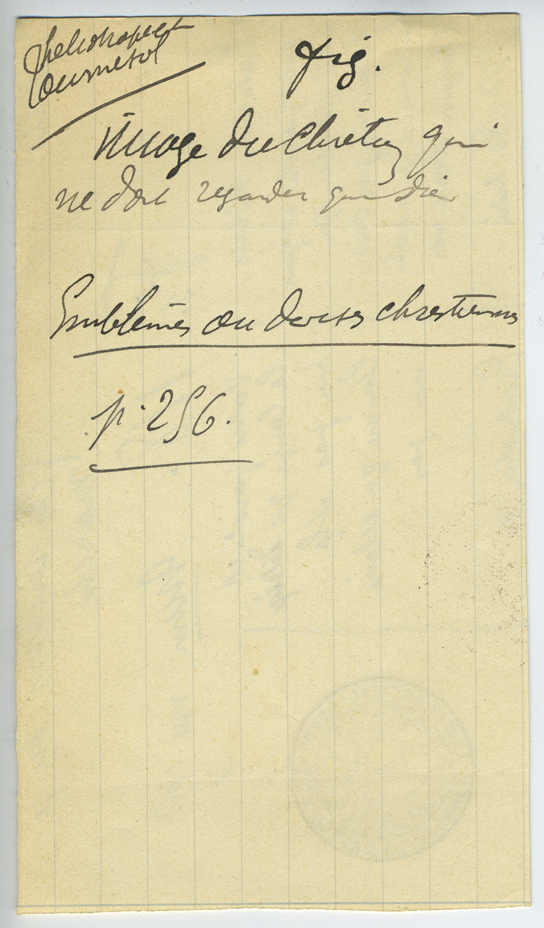 heliotrope et
tournesol
fig.
image du chrétien qui
ne doit regarder que dieu
Emblèmes ou devises chrestiennes
p. 256.